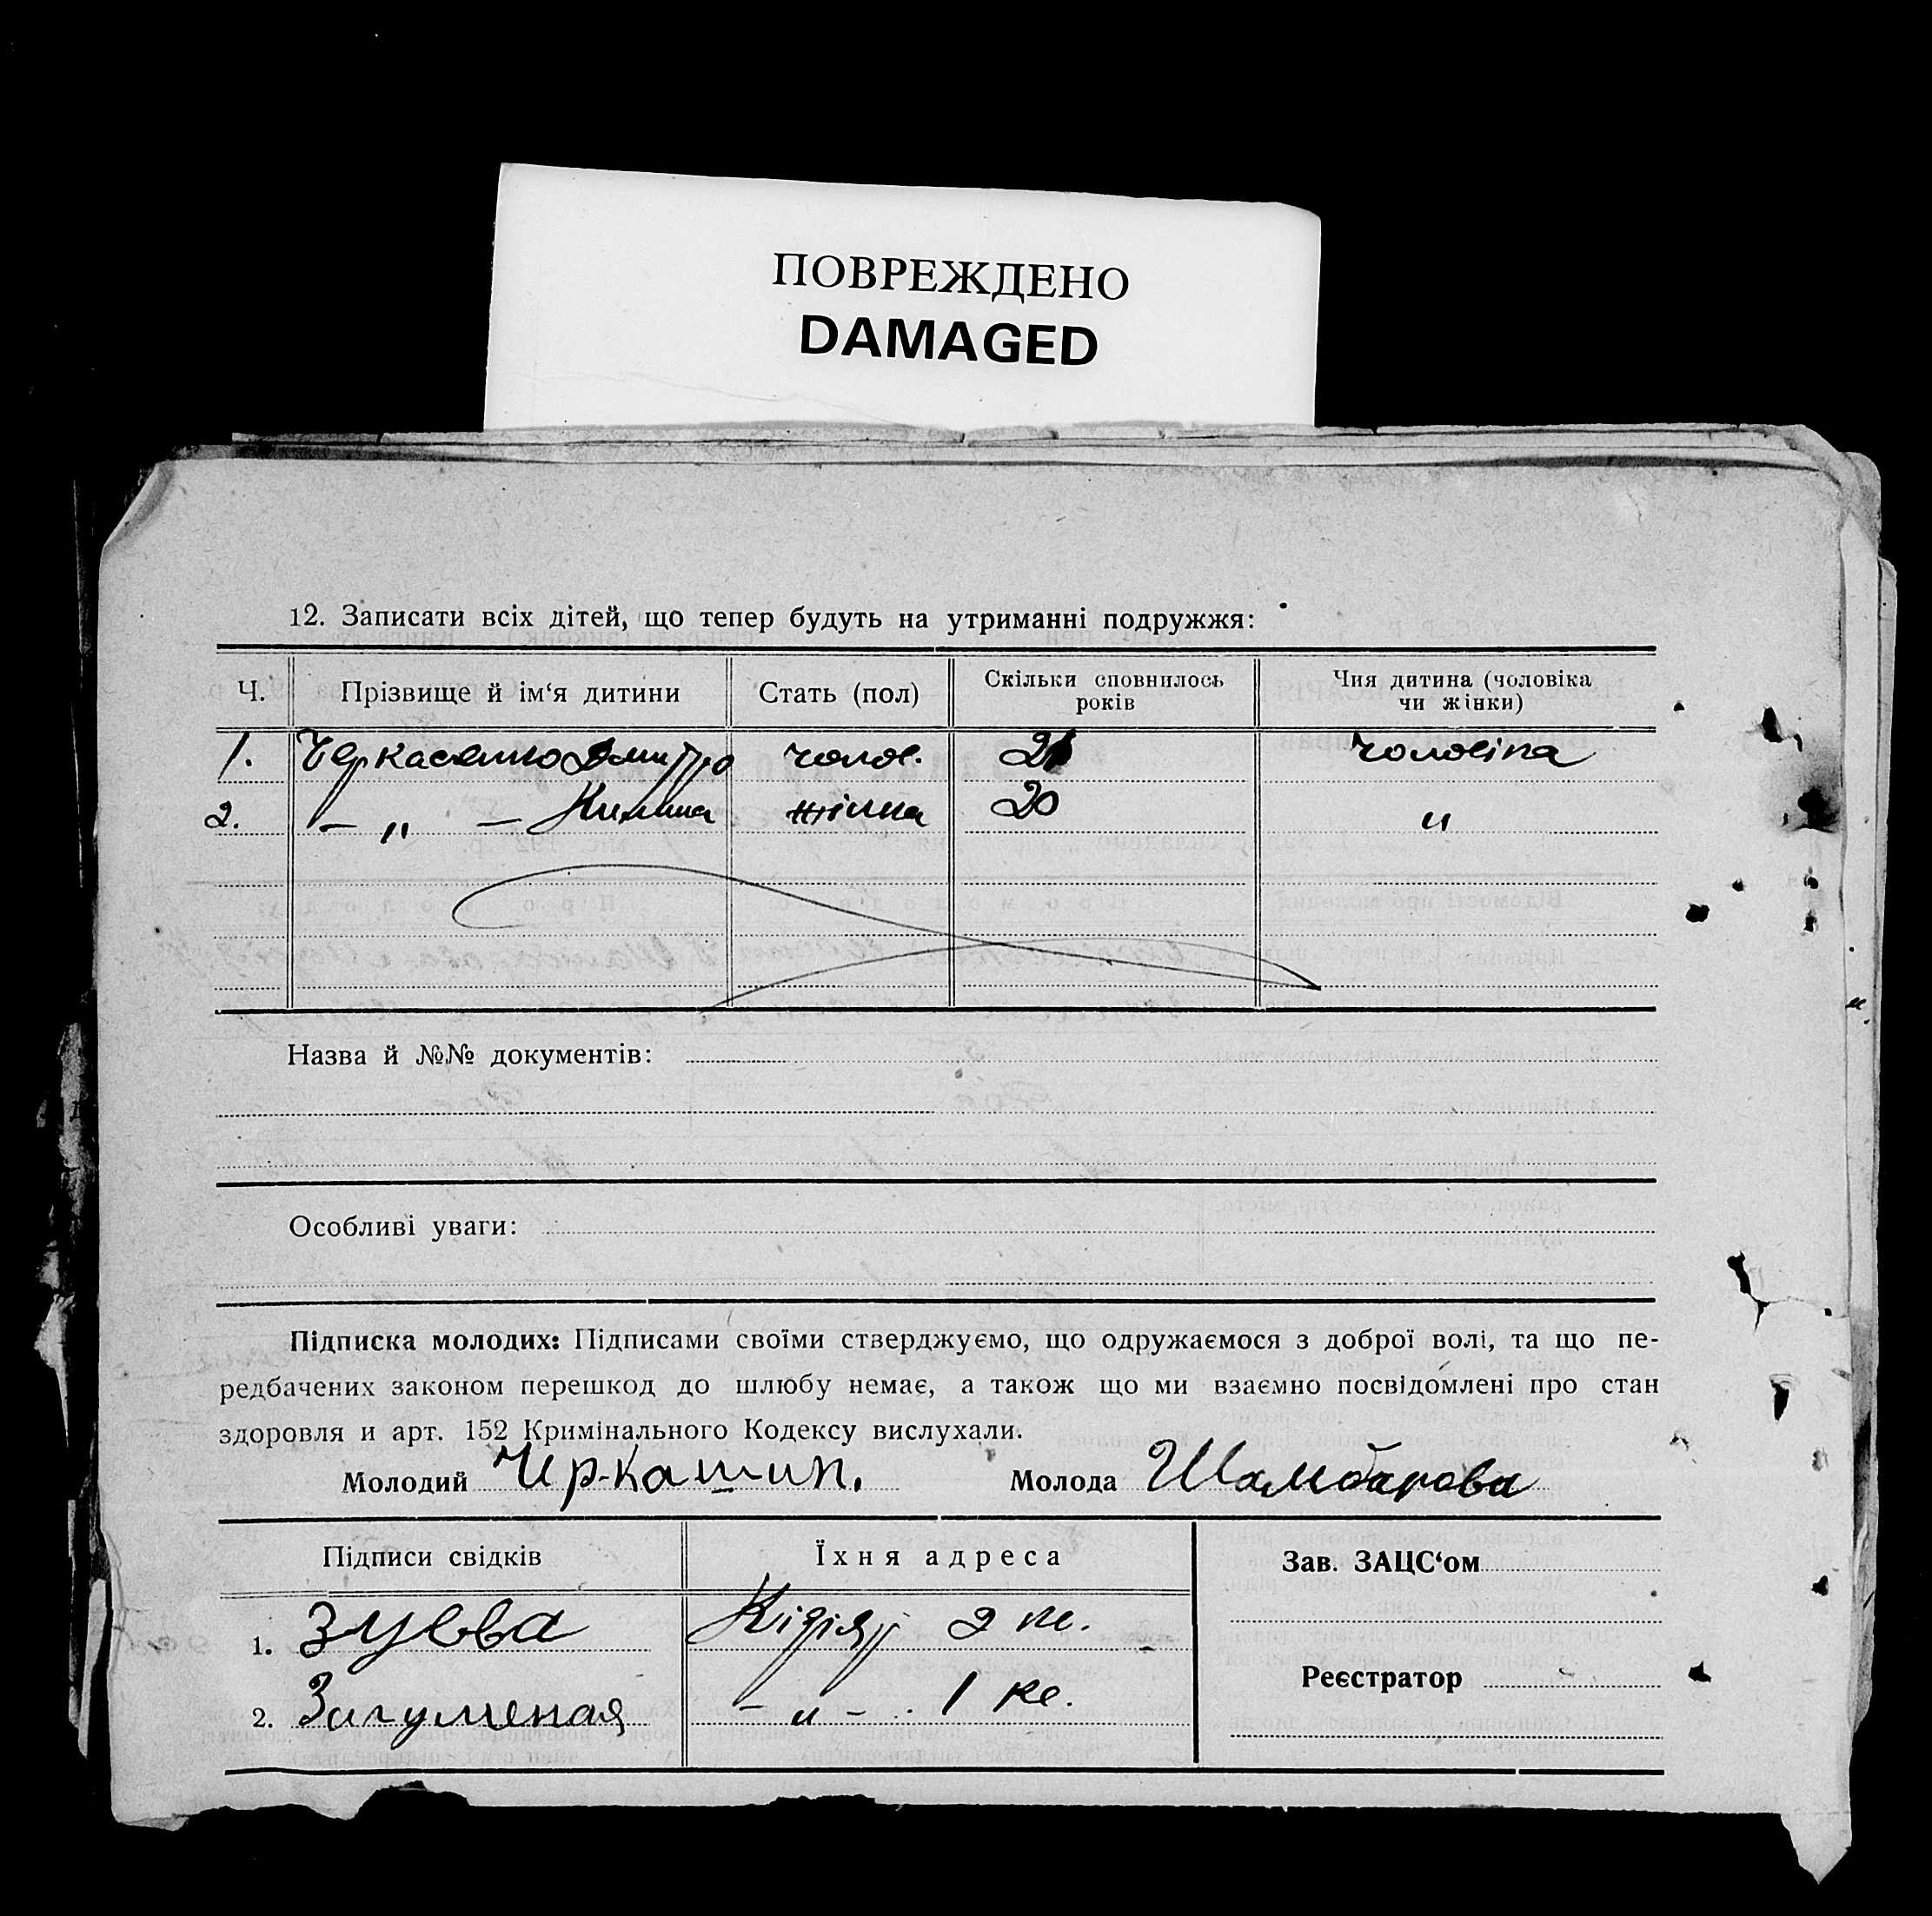 ПОВРЕЖДЕНО
DAMAGED
12. Записати всіх дітей, що тепер будуть на утриманні подружжя:
Ч. Прізвище й ім‘я дитини Стать (пол) Скільки сповнилось років Чия дитина (чоловіка чи жінки)
1. Черкасенко Дмитро чолов. 21 чоловіка
2. – „ – Килина жінка 20 „
Назва й №№ документів:
Особливі уваги:
Підписка молодих: Підписами своїми стверджуємо, що одружаємося з доброї волі, та що пе-
редбачених законом перешкод до шлюбу немає, а також що ми взаємно посвідомлені про стан
здоровля и арт. 152 Кримінального Кодексу вислухали.
Молодий Чіркашин. Молода Шамбарова
Підписи свідків Їхня адреса Зав. ЗАЦС‘ом
1. Зуєва 2
Реєстратор
2. Загуменая – „ – 1